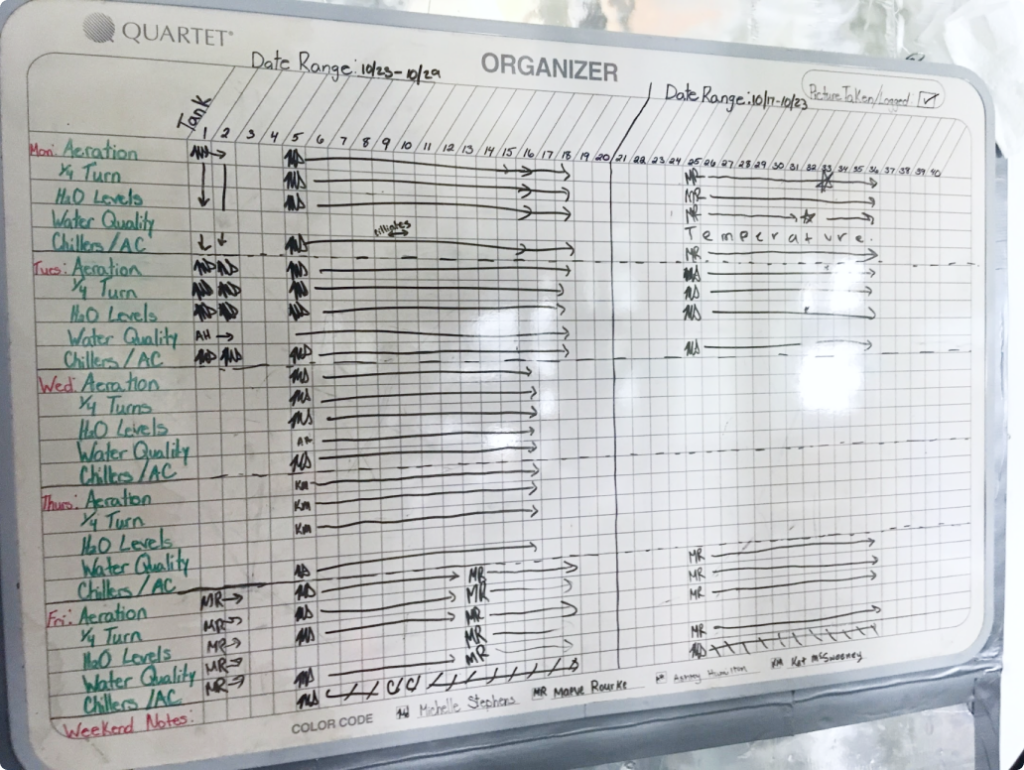 QUARTET®
ORGANIZER
Date Range: 10/23-10/29
Date Range: 10/17-10/23
Picture Taken/Logged ☑
Tank
1 2 3 4 5 6 7 8 9 10 11 12 13 14 15 16 17 18 19 20 21 22 23 24 25 26 27 28 29 30 31 32 33 34 35 36 37 38 39 40
Mon: Aeration AH → MR
1/4 Turn MR
H2O Levels MR
Water Quality Temperature.
Chillers/AC MR
Tues: Aeration
1/4 Turn
H2O Levels
Water Quality AH →
Chillers/AC
Wed: Aeration
1/4 Turns
H2O Levels
Water Quality
Chillers/AC
KM
Thurs: Aeration KM
1/4 Turn KM
H2O Levels
Water Quality MR
Chillers/AC MR MR
Fri: Aeration MR → MR MR
1/4 Turn MR → MR
H2O Levels MR → MR MR
Water Quality MR → MR
Chillers/AC MR →
Weekend Notes:
COLOR CODE Michelle Stephens MR Marve Rourke Kat McSweeney